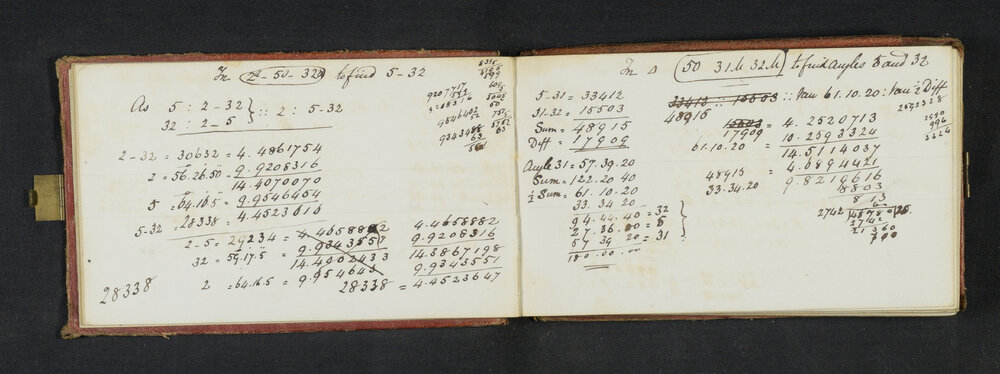 In (2d - 50 - 32d) to find 5-32
As 5 : 2-32 } :: 2 : 5-32
32 : 2-5
2-32 = 30632 = 4.4861754
2 = 56.26.50 = 9.9208316
14.4070070
5 = 64.16.5 = 9.9546454
5-32 = 28338 = 4.4523616
2-5 = 29234 = 4.4658882
32 = 59.17.5 = 9.9343557
14.4002433
2 = 64.16.5 = 9.954645
28338
4.4658882
9.9208316
14.3867198
9.9343551
28338 = 4.4523647
In Δ (50 31M 32M) to find angles 5 and 32
5-31 = 33412
31-32 = 15503
Sum = 48915
Diff = 17909
33412 : 15503 :: Tan 61.10.20 : Tan ½ Diff
48915
15503
17909 = 4.2520713
61.10.20 = 10.2593324
14.5114037
48915 = 4.6894421
33.34.20 = 9.8219616
18803
813
2742
2742
21360
Angle 31 = 57.39.20
Sum = 122.20.40
½ Sum = 61.10.20
33.34.20
94.44.40 = 32
27.36.00 = 5
57.39.20 = 31
180.00.00
2582328
996